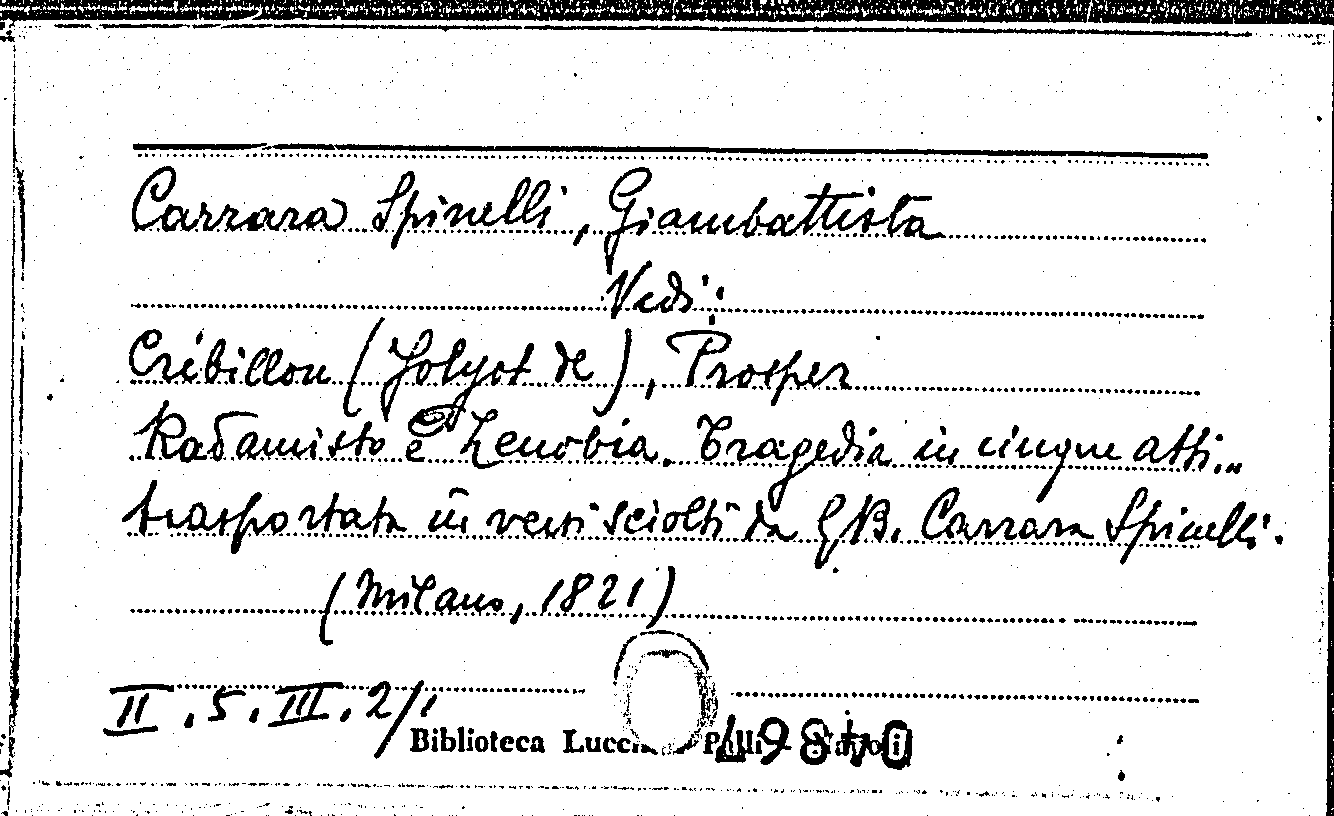 Carrara Spinelli, Giambattista
Vedi:
Crébillon (Jolyot de), Prosper
Radamisto e Zenobia. Tragedia in cinque atti...
trasportata in versi sciolti da G.B. Carrara Spinelli.
(Milano, 1821)
II.5.III.2/1
Biblioteca